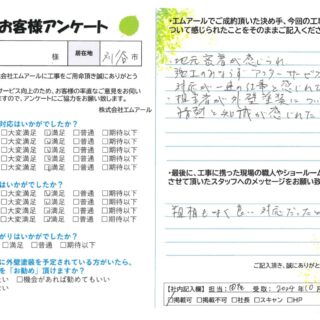 お客様アンケート
様
居在地
刈谷市
株式会社エムアールに工事をご用命頂き誠にありがとう
サービス向上のため、お客様の率直なご意見をお伺い
ますので、アンケートにご協力をお願い致します。
株式会社エムアール
対応はいかがでしたか？
□大変満足 ☑満足 □普通 □期待以下
□大変満足 ☑満足 □普通 □期待以下
□大変満足 ☑満足 □普通 □期待以下
いかがでしたか？
□大変満足 ☑満足 □普通 □期待以下
□大変満足 ☑満足 □普通 □期待以下
□大変満足 ☑満足 □普通 □期待以下
□大変満足 ☑満足 □普通 □期待以下
がりはいかがでしたか？
□大変満足 ☑満足 □普通 □期待以下
に外壁塗装を予定されている方がいたら、
を「お勧め」頂けますか？
たい □機会があれば勧めてもいい
ない
・エムアールでご成約頂いた決め手、今回の工事
ついて感じられたことをそのままご記入ください
地元密着が感じられ
施工のみならず アフターサービス
対応が一連の仕事と感じれた
・担当者が外壁塗装につい
情熱と知識が感じれた
・最後に、工事に携った現場の職人やショールーム
させて頂いたスタッフへのメッセージをお願い致
ご記入頂き、誠にありがと
【社内記入欄】 担当： 受取：2024年10月
□掲載可 □掲載不可 □社長 □スキャン □HP